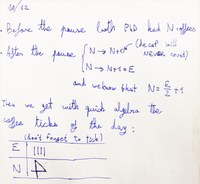 10/12
• Before the pause both P&D had N coffees
• After the pause { N → N+E (decaf will NEVER count)
N → N+1 = E
and we know that N = E/2 + 1
Then we get with quick algebra the
coffee ticks of the day :
(don't forget to tick)
E ||||
N